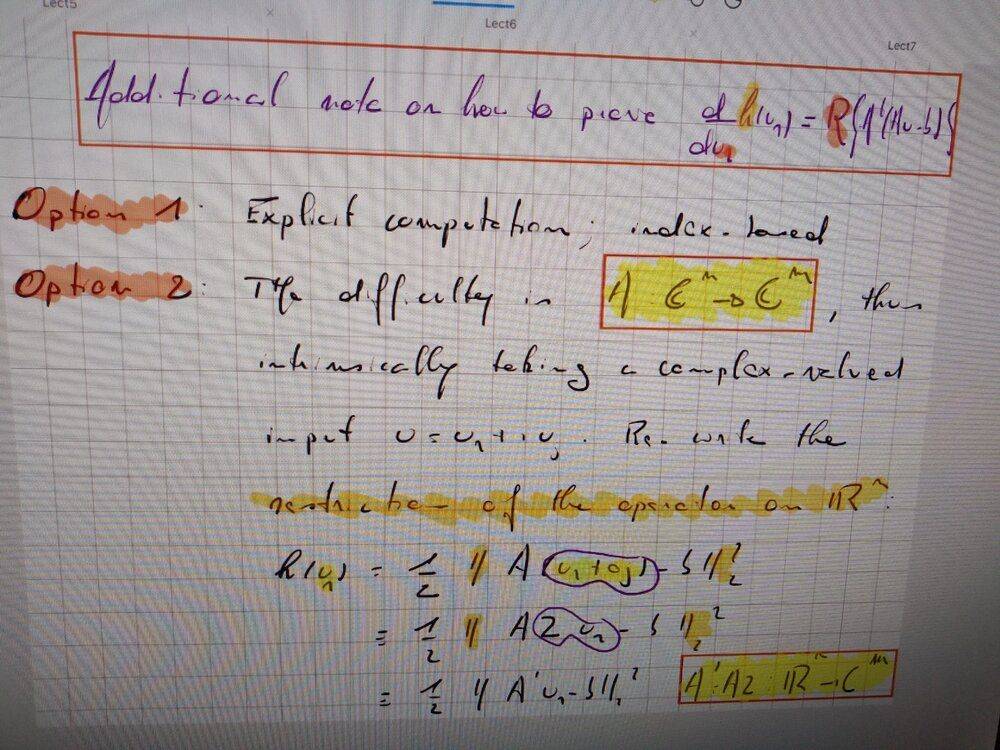 Lect5
Lect6
Lect7
Additional note on how to prove d/du₁ h(u₁) = R{A'(Au-b)}
Option 1: Explicit computation; index-based
Option 2: The difficulty is A: ℂⁿ → ℂᵐ, thus
intrinsically taking a complex-valued
input u = u₁ + i u_j. Re-write the
restriction of the operator on ℝⁿ:
h(u₁) = 1/2 || A(u₁ + 0j) - b ||₂²
= 1/2 || A Z u₁ - b ||₂²
= 1/2 || A' u₁ - b ||₂² A': AZ: ℝⁿ → ℂᵐ